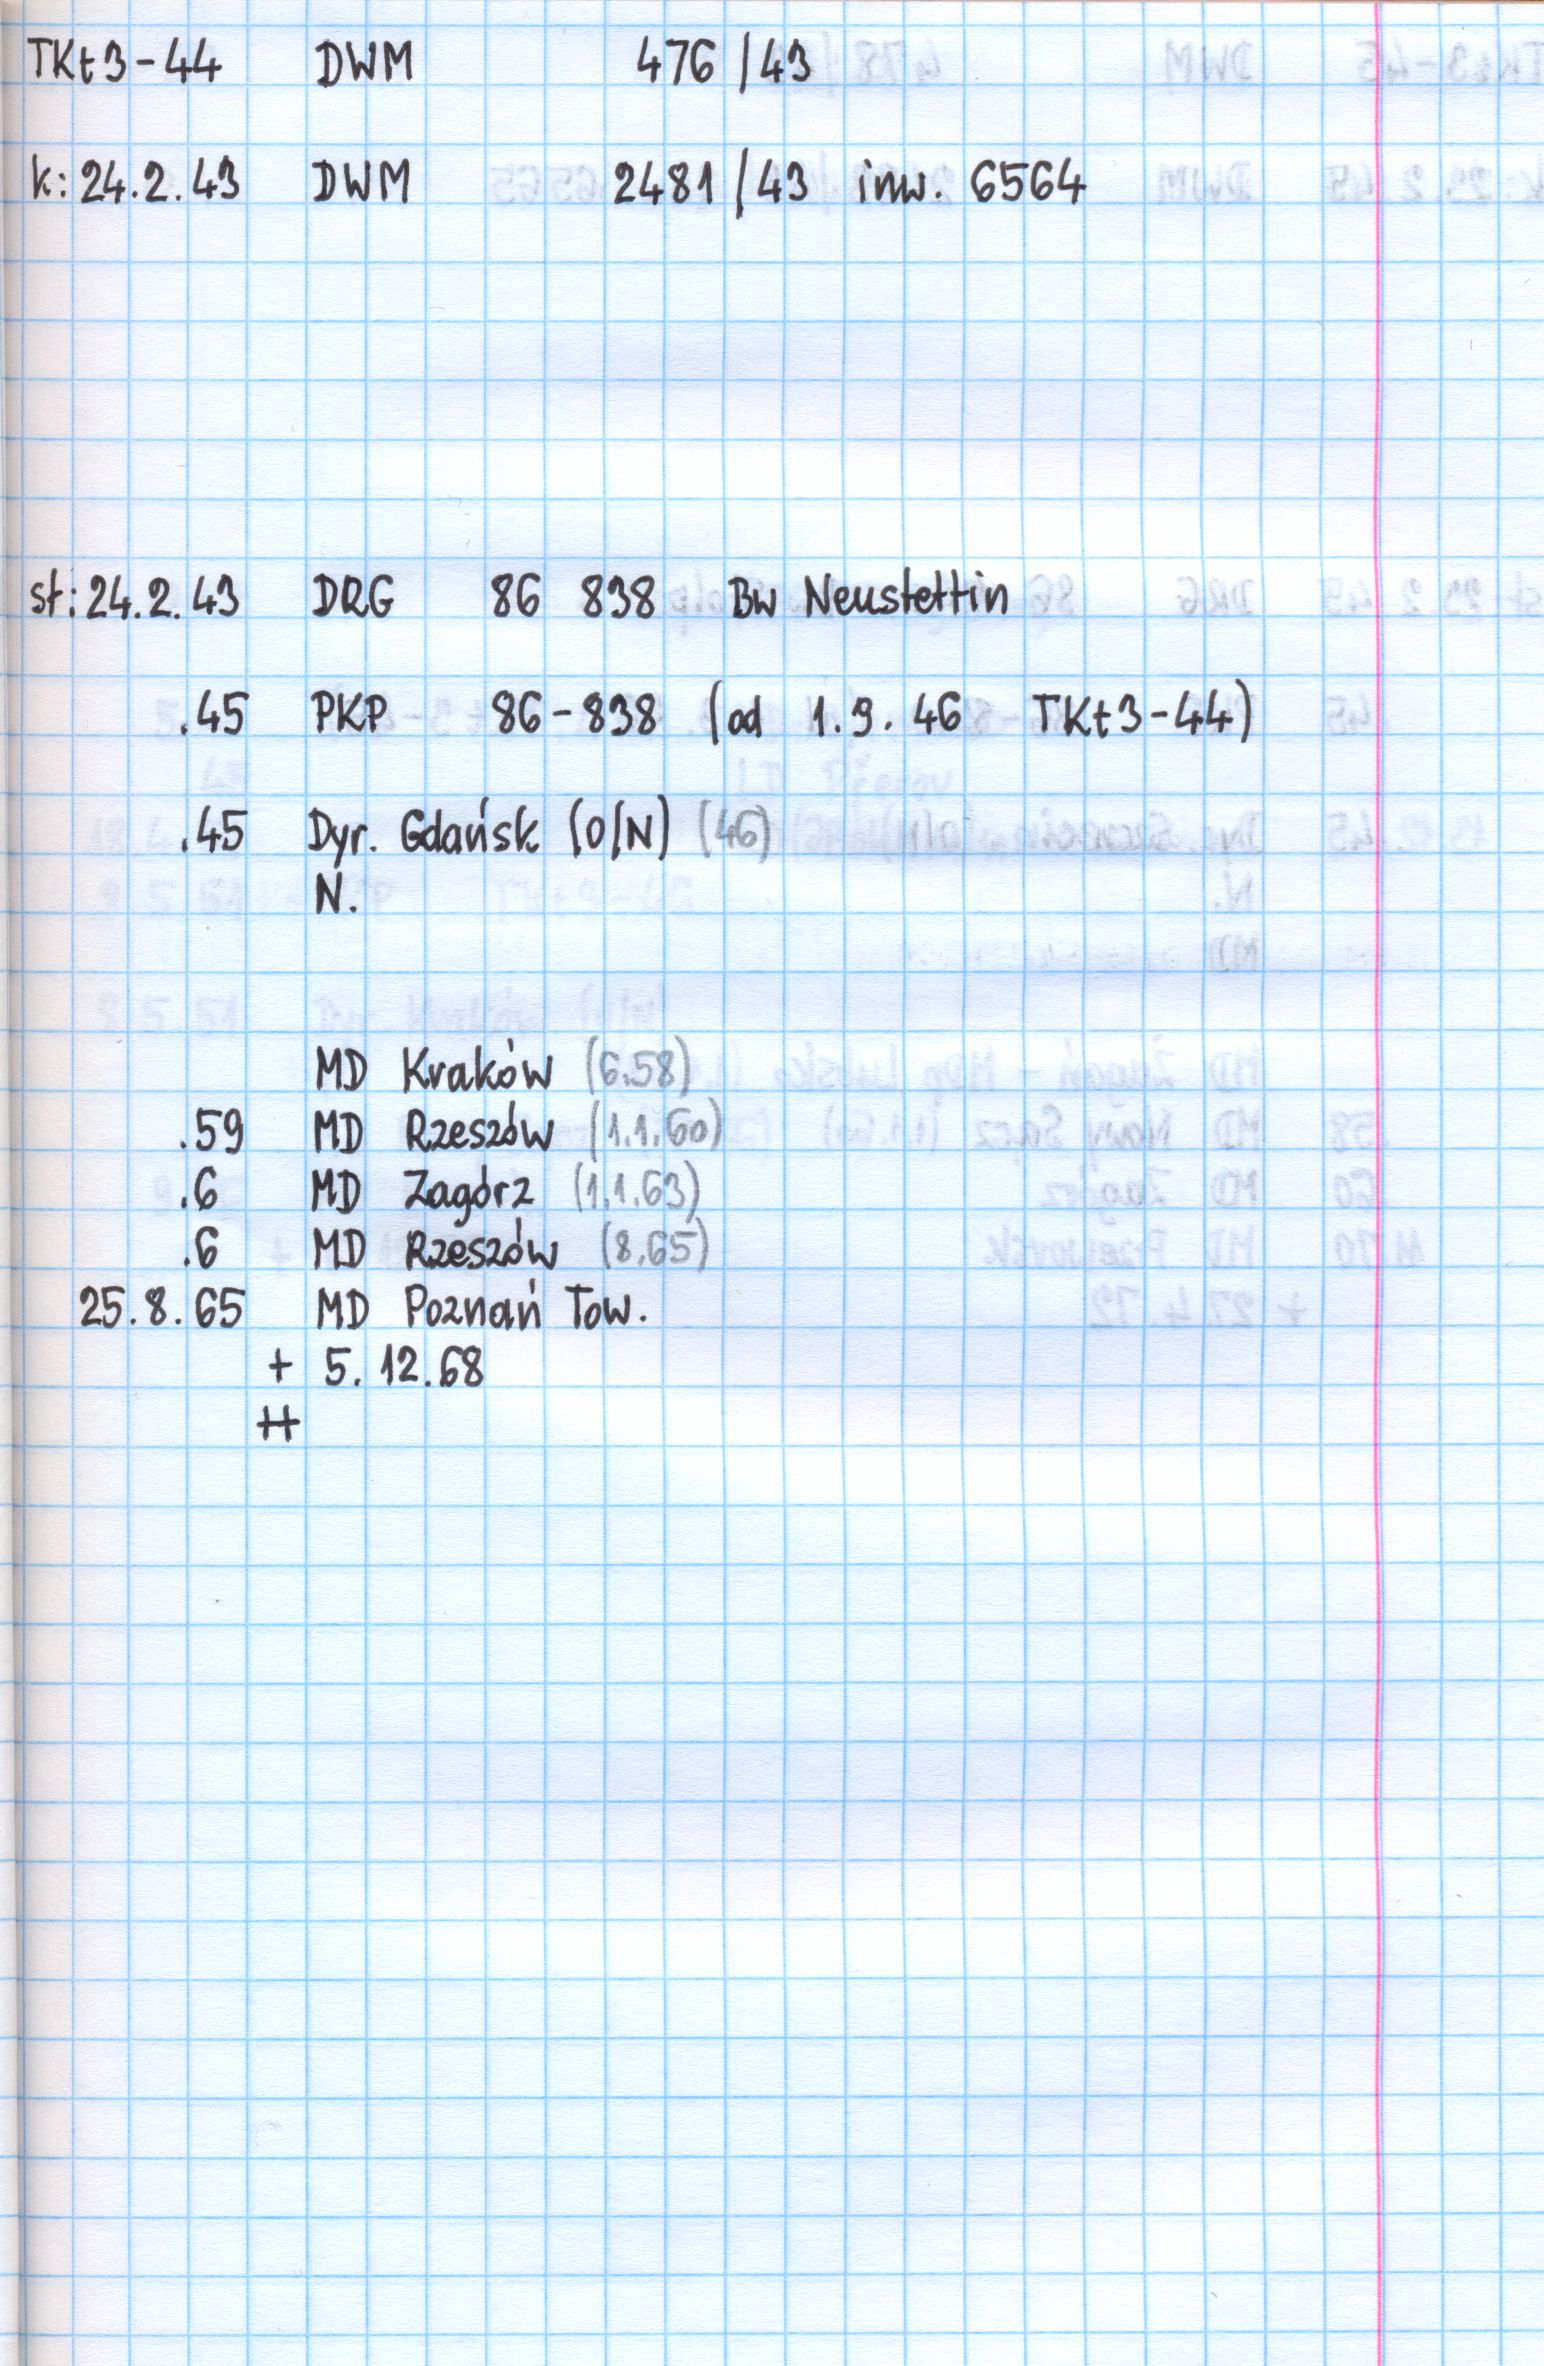 TKt3-44 DWM 476/43
k: 24.2.43 DWM 2481/43 inw. 6564
st: 24.2.43 DRG 86 838 Bw Neustettin
.45 PKP 86-838 (od 1.9.46 TKt3-44)
.45 Dyr. Gdańsk (O/N) (46)
N.
MD Kraków (6.58)
.59 MD Rzeszów (1.1.60)
.6 MD Zagórz (1.1.63)
.6 MD Rzeszów (8.65)
25.8.65 MD Poznań Tow.
+ 5.12.68
++